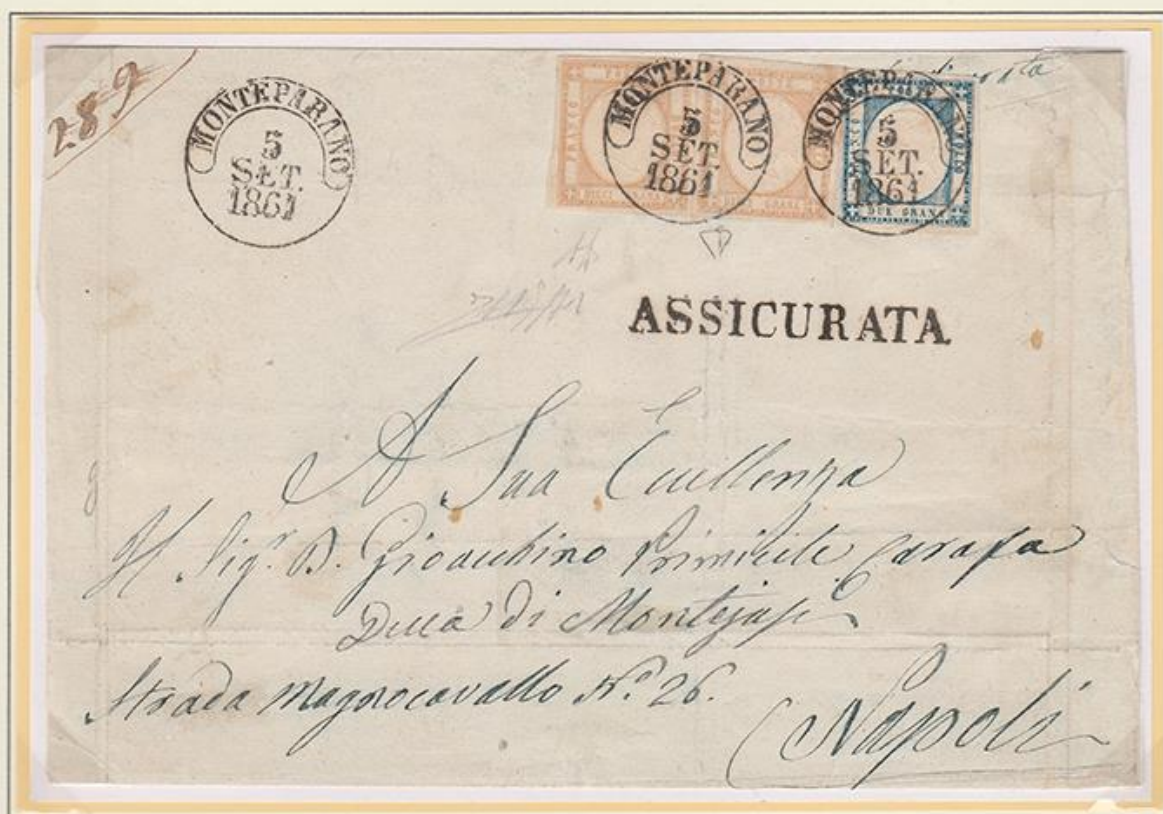 289
MONTEPARANO
5
SET.
1861
FRANCO
DIECI GRANA
MONTEPARANO
5
SET.
1861
DIECI GRANA
MONTEPARANO
5
SET.
1861
DUE GRANA
ASSICURATA
A Sua Eccellenza
Il Sig.r D. Gioacchino Primicile Carafa
Duca di Montejasi
Strada Magnocavallo N.o 26.
Napoli